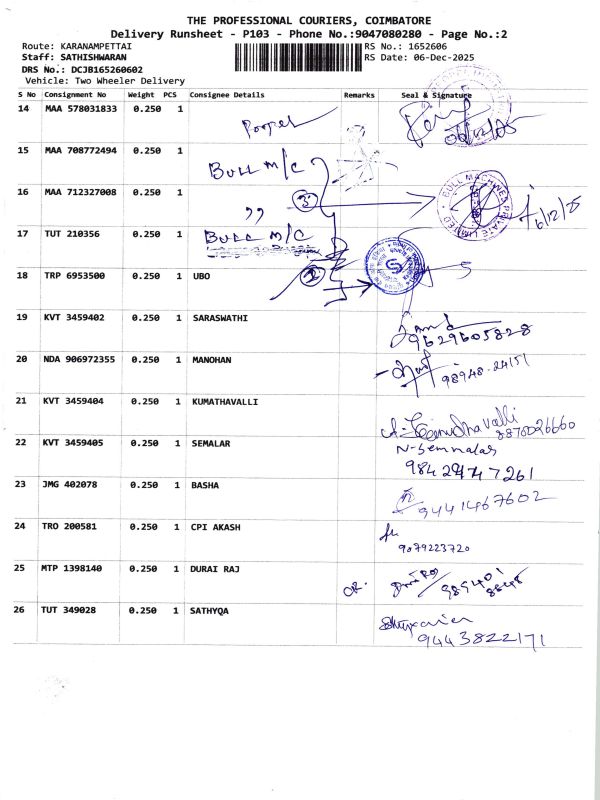 THE PROFESSIONAL COURIERS, COIMBATORE
Delivery Runsheet - P103 - Phone No.:9047080280 - Page No.:2
Route: KARANAMPETTAI RS No.: 1652606
Staff: SATHISHWARAN RS Date: 06-Dec-2025
DRS No.: DCJB165260602
Vehicle: Two Wheeler Delivery
S No Consignment No Weight PCS Consignee Details Remarks Seal & Signature
14 MAA 578031833 0.250 1
15 MAA 708772494 0.250 1 BULL M/C
16 MAA 712327008 0.250 1 ,, 3 6/12/25
17 TUT 210356 0.250 1 BULL M/C
18 TRP 6953500 0.250 1 UBO 2
19 KVT 3459402 0.250 1 SARASWATHI
9629605828
20 NDA 906972355 0.250 1 MANOHAN
98948-24151
21 KVT 3459404 0.250 1 KUMATHAVALLI
8870026660
22 KVT 3459405 0.250 1 SEMALAR N-Semmalar
9842947261
23 JMG 402078 0.250 1 BASHA 9441467602
24 TRO 200581 0.250 1 CPI AKASH
9079223720
25 MTP 1398140 0.250 1 DURAI RAJ
26 TUT 349028 0.250 1 SATHYQA
9443822171